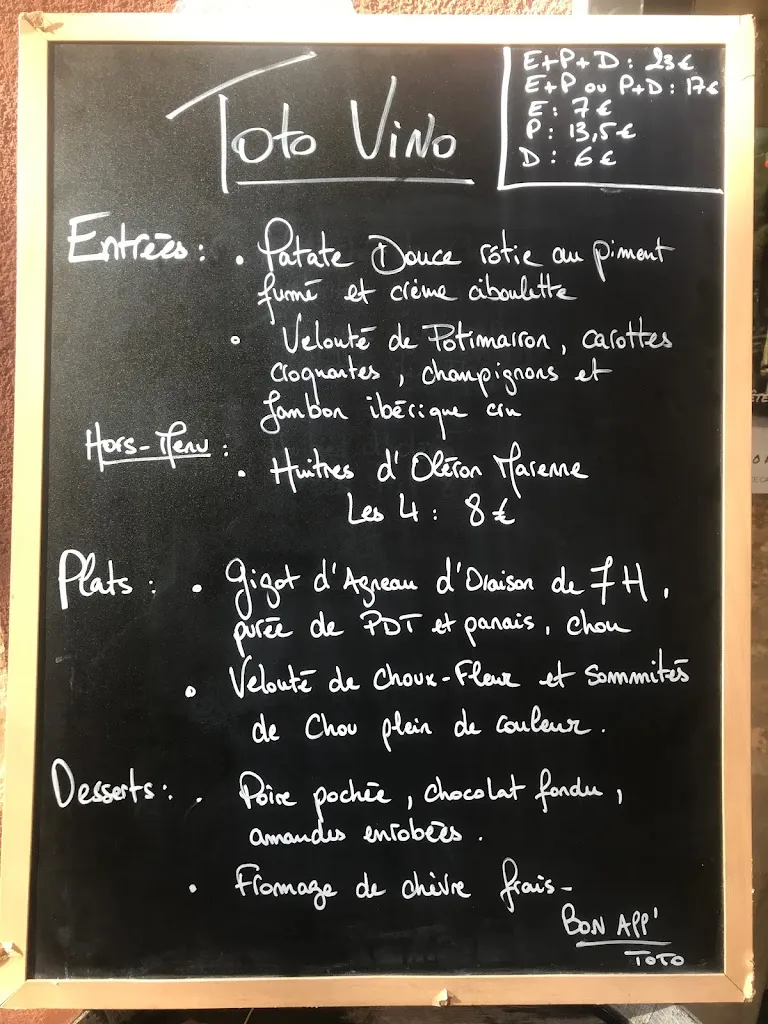 Toto Vino
E+P+D : 23€
E+P ou P+D : 17€
E : 7€
P : 13,5€
D : 6€
Entrées : • Patate Douce rôtie au piment
fumé et crème ciboulette
• Velouté de Potimarron, carottes
croquantes, champignons et
Jambon ibérique cru
Hors-Menu :
• Huitres d'Oléron Marenne
Les 4 : 8€
Plats : • Gigot d'Agneau d'Oraison de 7H,
purée de PDT et panais, chou
• Velouté de Choux-Fleur et Sommités
de Chou plein de couleur.
Desserts : • Poire pochée, chocolat fondu,
amandes enrobées.
• Fromage de chèvre frais-
BON APP'
TOTO